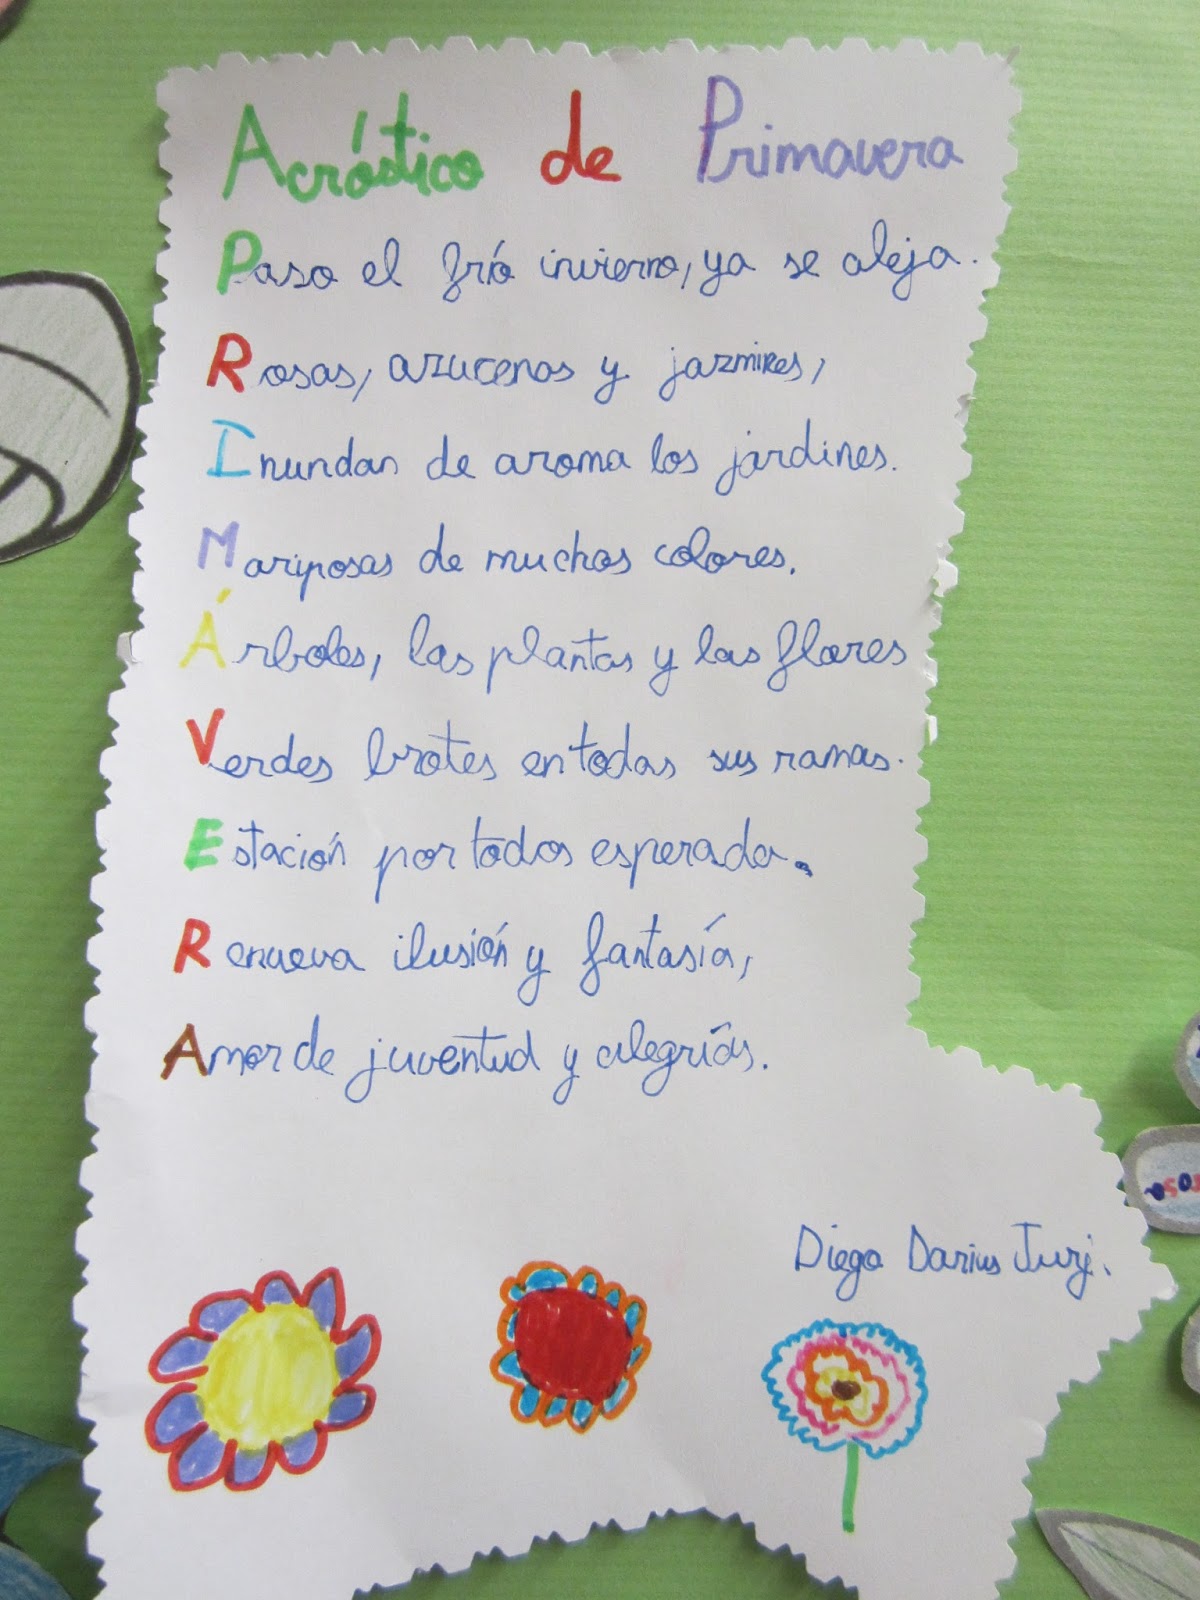 Acróstico de Primavera
Paso el frío invierno, ya se aleja.
Rosas, azucenas y jazmines,
Inundan de aroma los jardines.
Mariposas de muchos colores.
Árboles, las plantas y las flores
Verdes brotes en todas sus ramas.
Estación por todos esperada.
Renueva ilusión y fantasía,
Amor de juventud y alegrías.
Diego Darius Jurj.